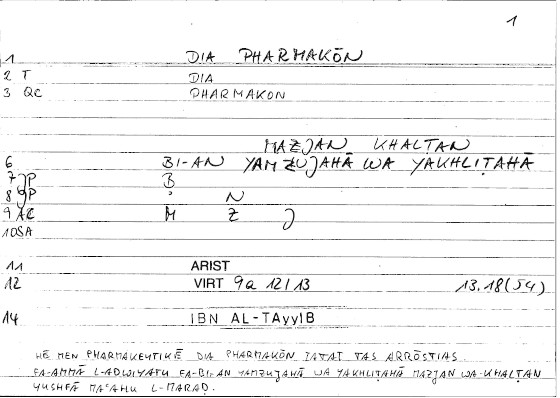 1
1 DIA PHARMAKŌN
2 T DIA
3 QC PHARMAKON
MAZJAN KHALṬAN
6 BI-AN YAMZUJAHĀ WA YAKHLIṬAHĀ
7 JP B
8 JP ʾ N
9 AC M Z J
10 SA
11 ARIST
12 VIRT 9a 12/13 13.18(54)
14 IBN AL-TAyyIB
HĒ MEN PHARMAKEUTIKĒ DIA PHARMAKŌN IATAI TAS ARRŌSTIAS.
FA-AMMĀ L-ADWIYATU FA-BI-AN YAMZUJAHĀ WA YAKHLIṬAHĀ MAZJAN WA-KHALṬAN
YUSHFĀ MAʿAHU L-MARAḌ.